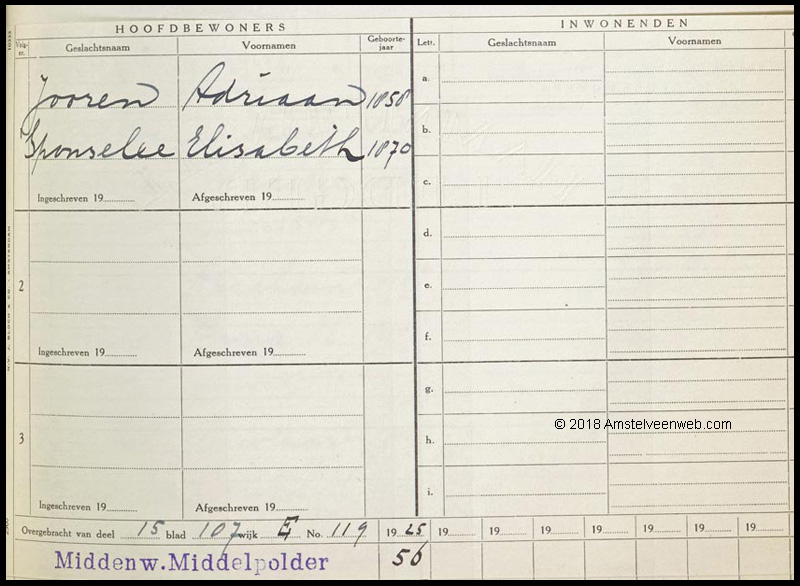 HOOFDBEWONERS INWONENDEN
Volg- nr. Geslachtsnaam Voornamen Geboorte- jaar Lett. Geslachtsnaam Voornamen
Jooren Adriaan 1858 a.
Sponselee Elisabeth 1870 b.
c.
Ingeschreven 19 Afgeschreven 19
d.
2 e.
Ingeschreven 19 Afgeschreven 19 f.
g.
© 2018 Amstelveenweb.com
3 h.
i.
Ingeschreven 19 Afgeschreven 19
Overgebracht van deel 15 blad 107 wijk E No. 119 19 25 19 19 19 19 19 19 19
Middenw. Middelpolder 56